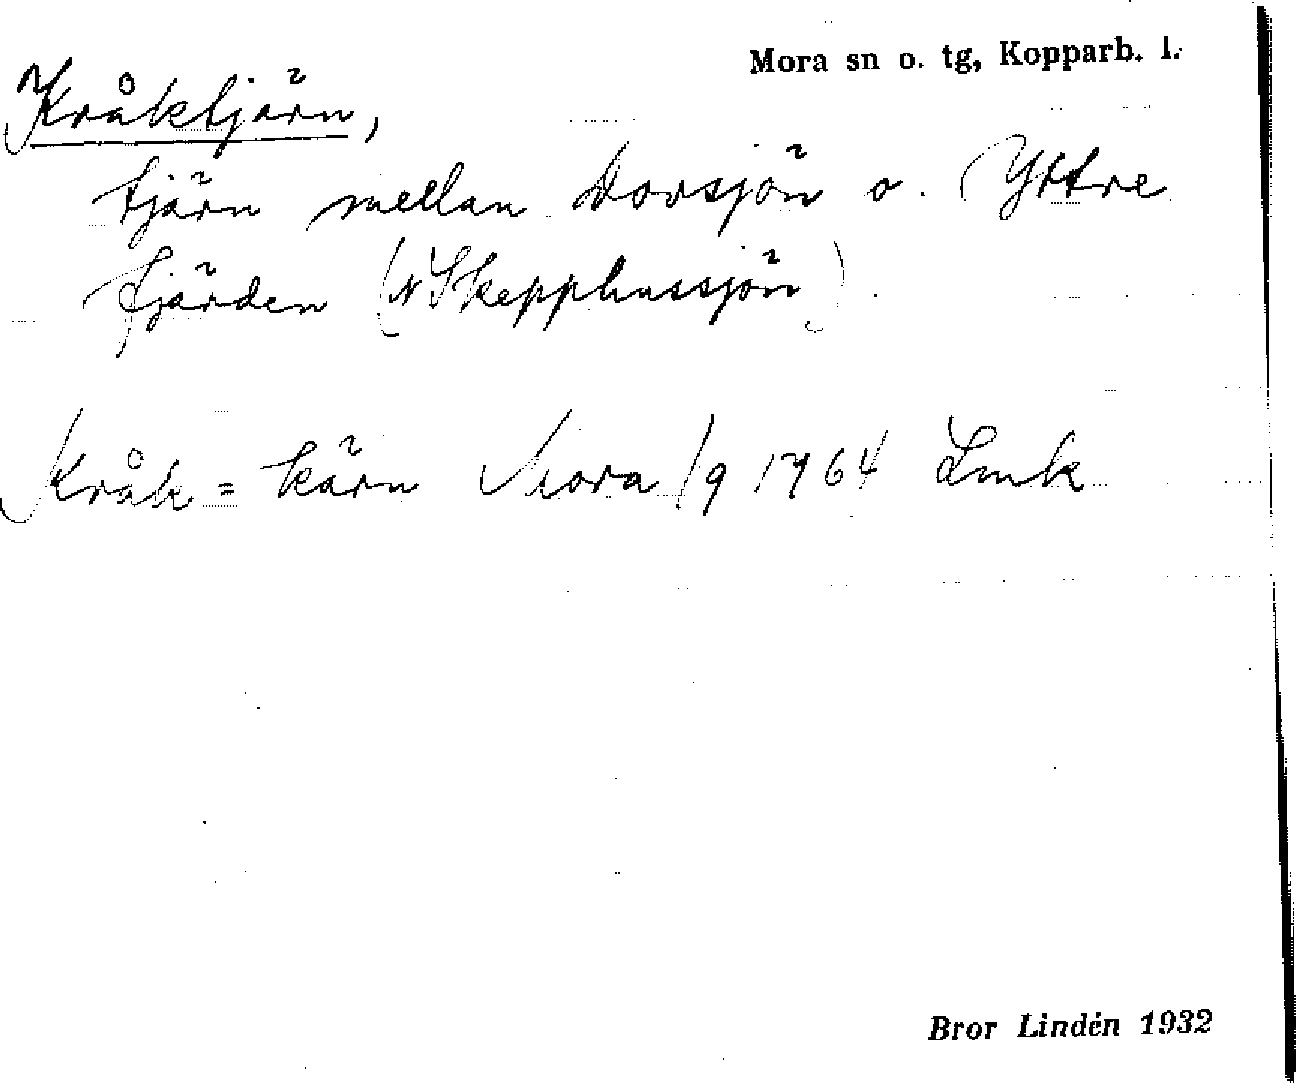 Mora sn o. tg, Kopparb. l.
Kråktjärn,
tjärn mellan Dovsjön o. Yttre
fjärden (N Skepphussjön).
Kråk = kärn Mora 1/9 1764 Lmk
Bror Lindén 1932